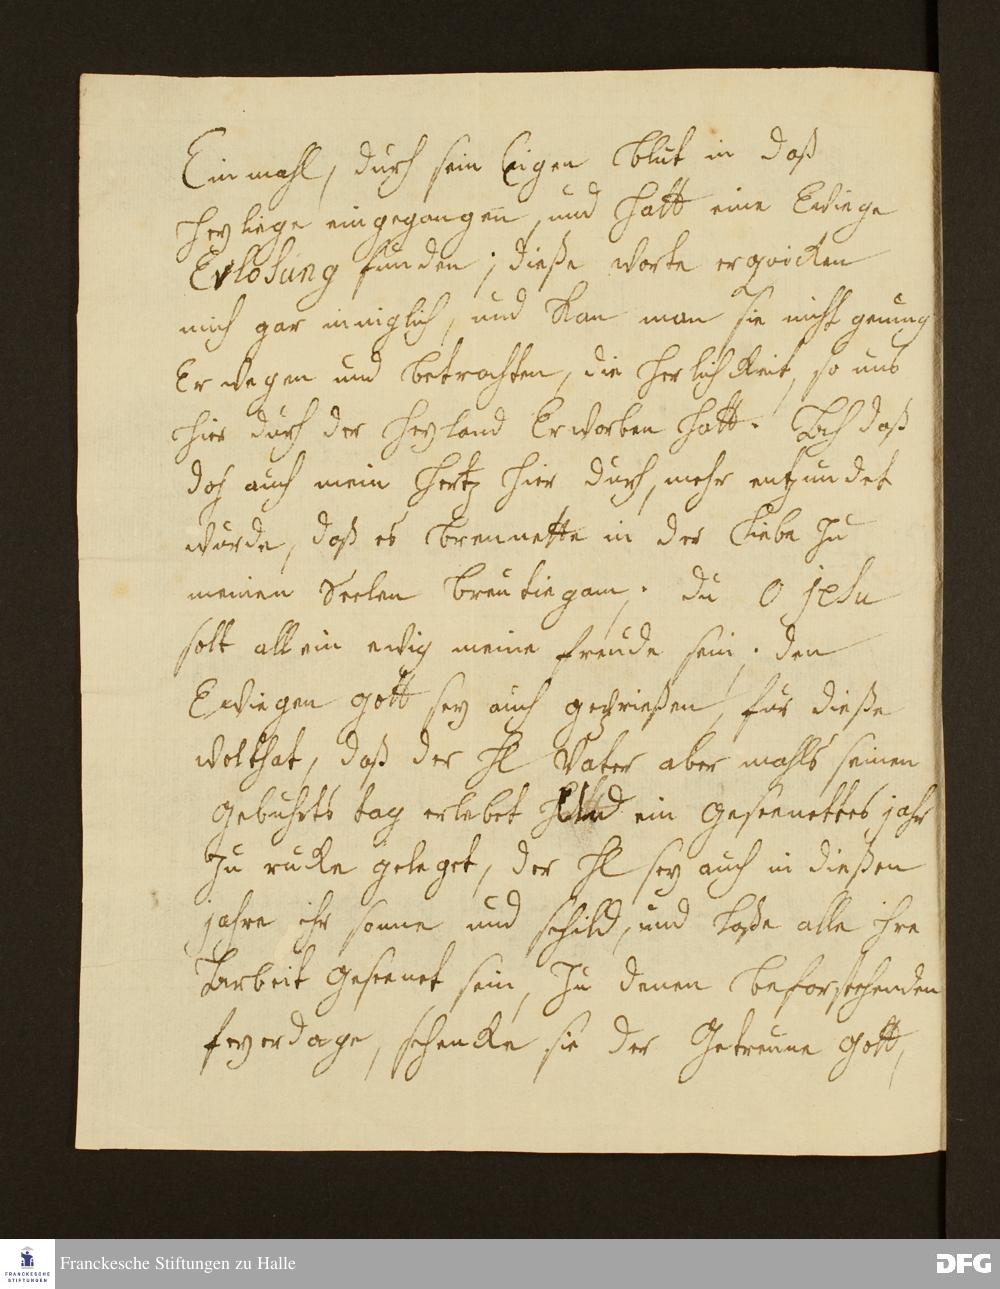 Ein mahl, durch sein Eigen blut in daß
heyliege ein gegangen, und hatt eine Ewiege
Erlösung funden; dieße worte erqvicken
mich gar inniglich, und kan man sie nicht genung
Er wegen und betrachten, die herlichkeit, so uns
hier durch der heyland Erworben hatt. Ach daß
doch auch mein hertz hier durch, mehr entzundet
wurde, daß es brennette in der liebe zu
meinen Seelen breutiegam; du O jesu
solt allein ewig meine freude sein; den
Ewiegen gott sey auch geprießen, für dieße
wolthat, daß der hl Vater aber mahls seinen
gebuhrts tag erlebet und ein geseenettes jahr
zu rucke geleget, der hl sey auch in dießen
jahre ihr sonne und schild, und laße alle ihre
Arbeit geseenet sein, zu denen beforstehenden
feyerdage, schencke sie der getreune gott,
FRANCKESCHE STIFTUNGEN
Franckesche Stiftungen zu Halle
DFG